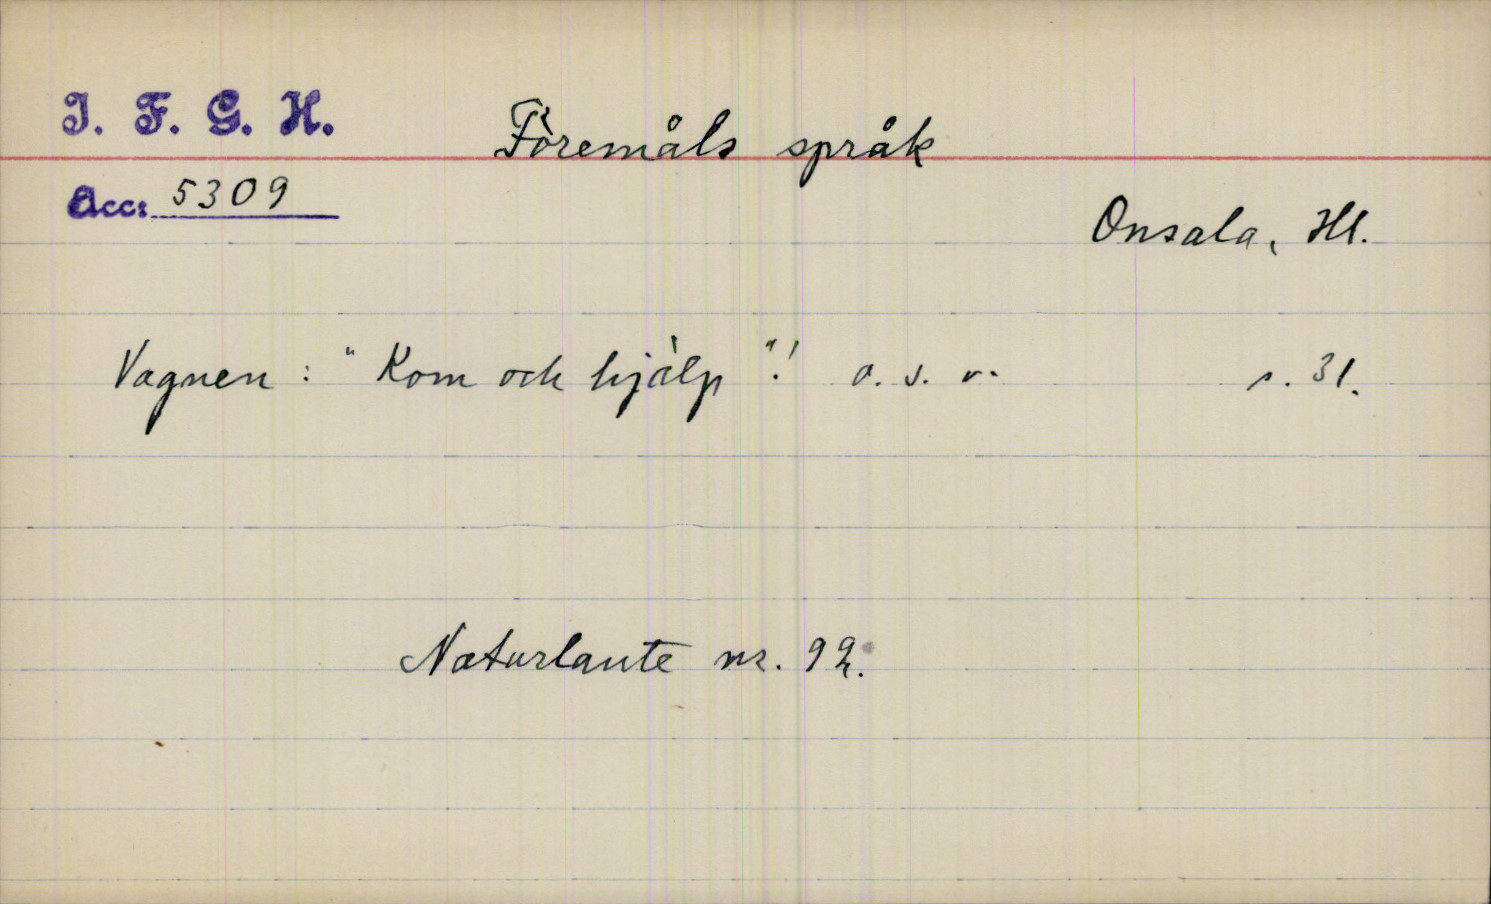 I. F. G. H.
Föremåls språk
Acc: 5309
Onsala, Hl.
Vagnen: "Kom och hjälp"! o.s.v. s. 31.
Naturlaute nr. 92.